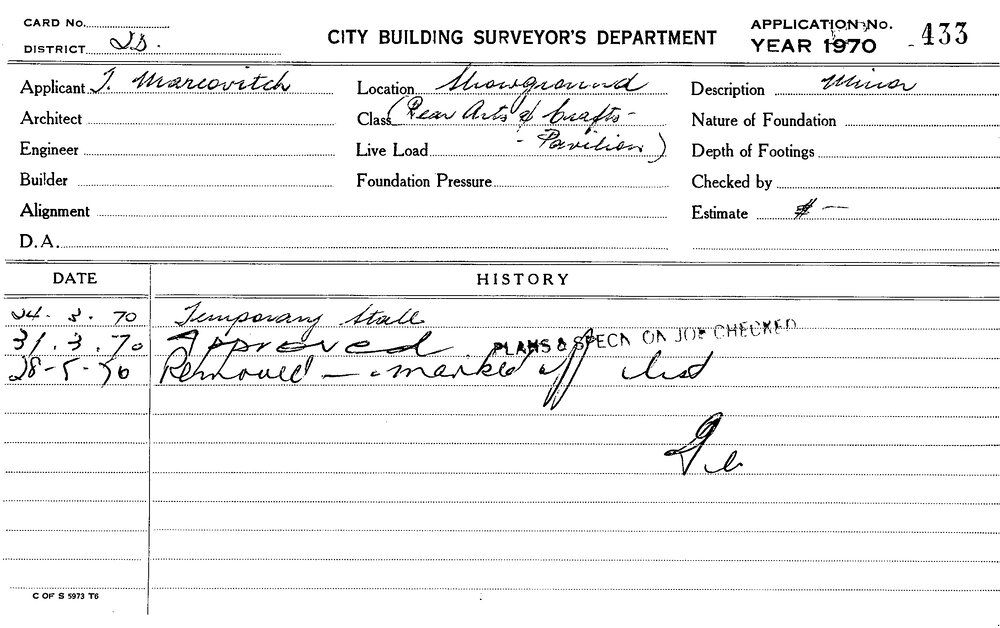 CARD No.
DISTRICT
CITY BUILDING SURVEYOR'S DEPARTMENT
APPLICATION No.
YEAR 1970
433
Applicant J. Marcovitch
Location Showground
Description Minor
Architect
Class (Rear Arts & Crafts-
Nature of Foundation
Engineer
Live Load - Pavilion)
Depth of Footings
Builder
Foundation Pressure
Checked by
Alignment
Estimate $ —
D.A.
DATE HISTORY
24. 3. 70 Temporary Stall
31. 3. 70 Approved PLANS & SPECN ON JOB CHECKED
28-5-70 Removed — marked off list
C OF S 5973 T6